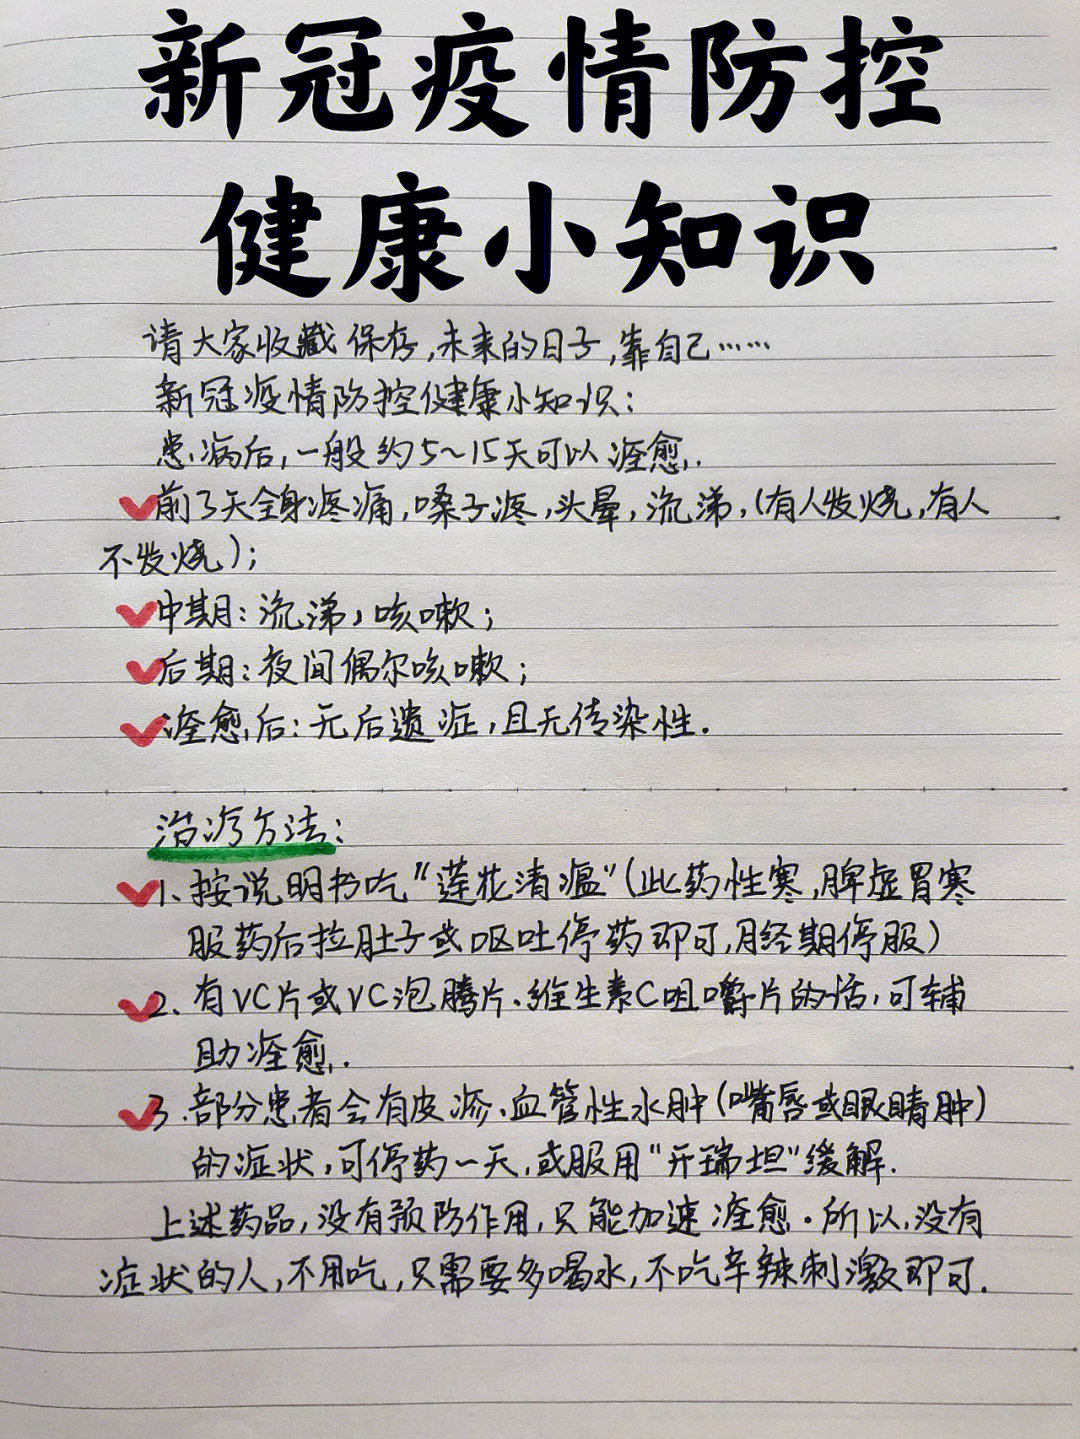 新冠疫情防控
健康小知识
请大家收藏保存,未来的日子,靠自己……
新冠疫情防控健康小知识:
患病后,一般约5~15天可以痊愈.
前3天全身疼痛,嗓子疼,头晕,流涕,(有人发烧,有人
不发烧);
中期:流涕,咳嗽;
后期:夜间偶尔咳嗽;
痊愈后:无后遗症,且无传染性.
治疗方法:
1、按说明书吃"莲花清瘟"(此药性寒,脾虚胃寒
服药后拉肚子或呕吐停药即可,月经期停服)
2、有VC片或VC泡腾片、维生素C咀嚼片的话,可辅
助痊愈.
3.部分患者会有皮疹、血管性水肿(嘴唇或眼睛肿)
的症状,可停药一天,或服用"开瑞坦"缓解.
上述药品,没有预防作用,只能加速痊愈。所以,没有
症状的人,不用吃,只需要多喝水,不吃辛辣刺激即可.